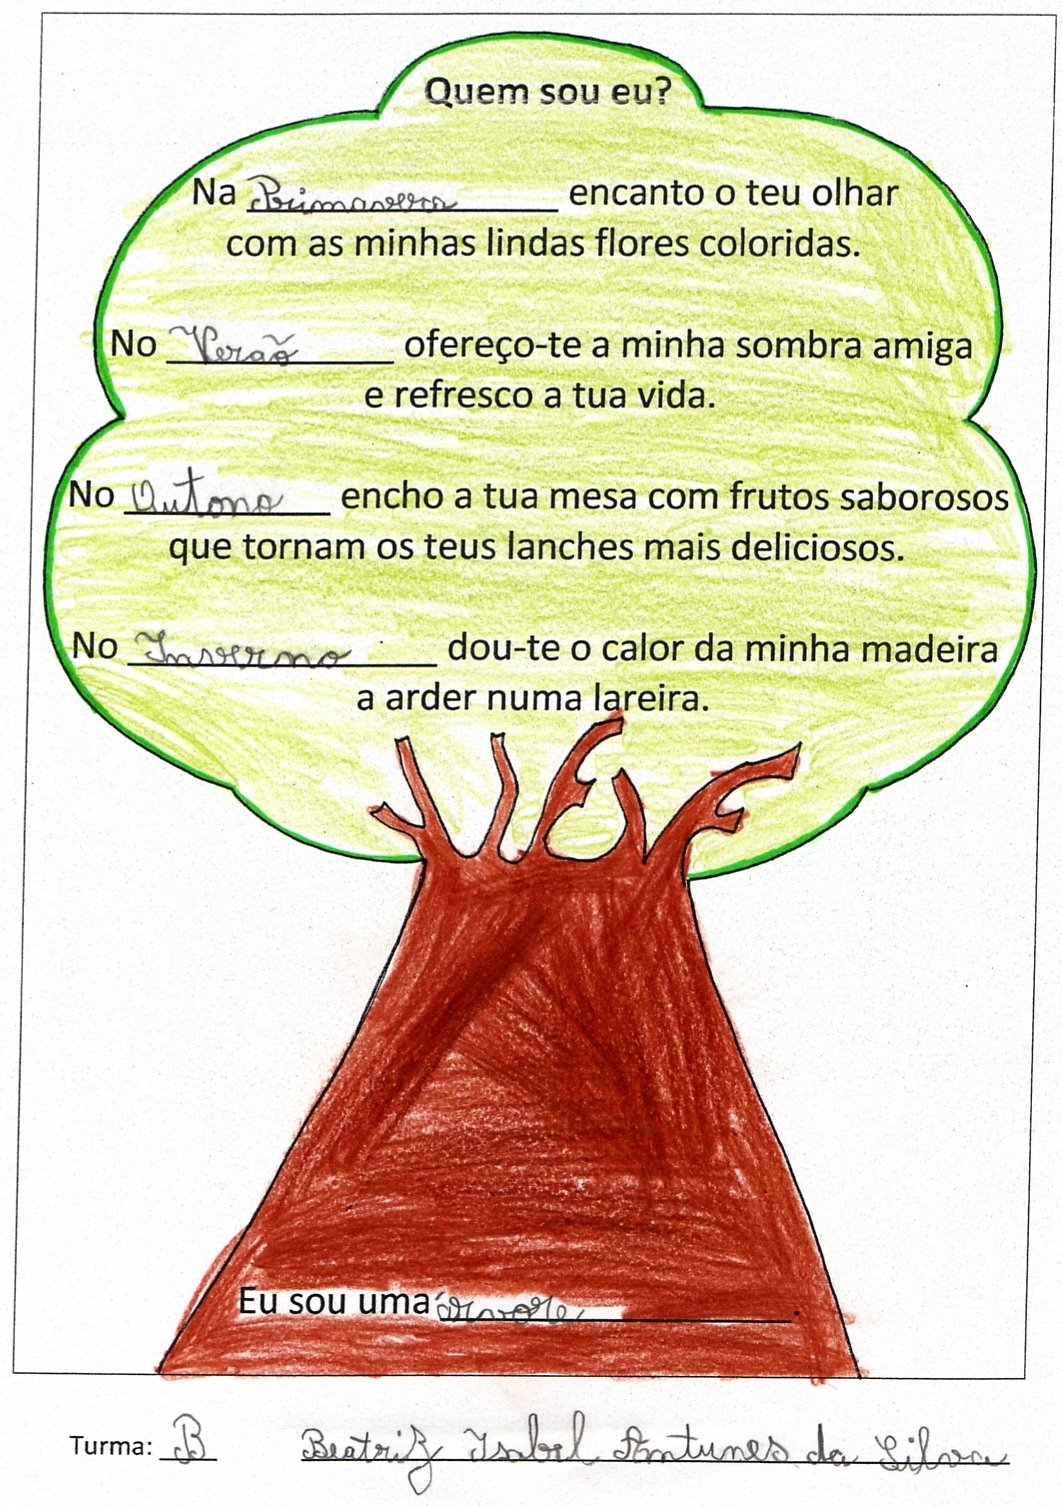 Quem sou eu?
Na Primavera encanto o teu olhar
com as minhas lindas flores coloridas.
No Verão ofereço-te a minha sombra amiga
e refresco a tua vida.
No Outono encho a tua mesa com frutos saborosos
que tornam os teus lanches mais deliciosos.
No Inverno dou-te o calor da minha madeira
a arder numa lareira.
Eu sou uma árvore.
Turma: B Beatriz Isabel Antunes da Silva